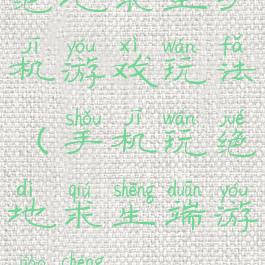 绝地求生手
jī yóu xì wán fǎ
机游戏玩法
shǒu jī wán jué
(手机玩绝
dì qiú shēng duān yóu
地求生端游